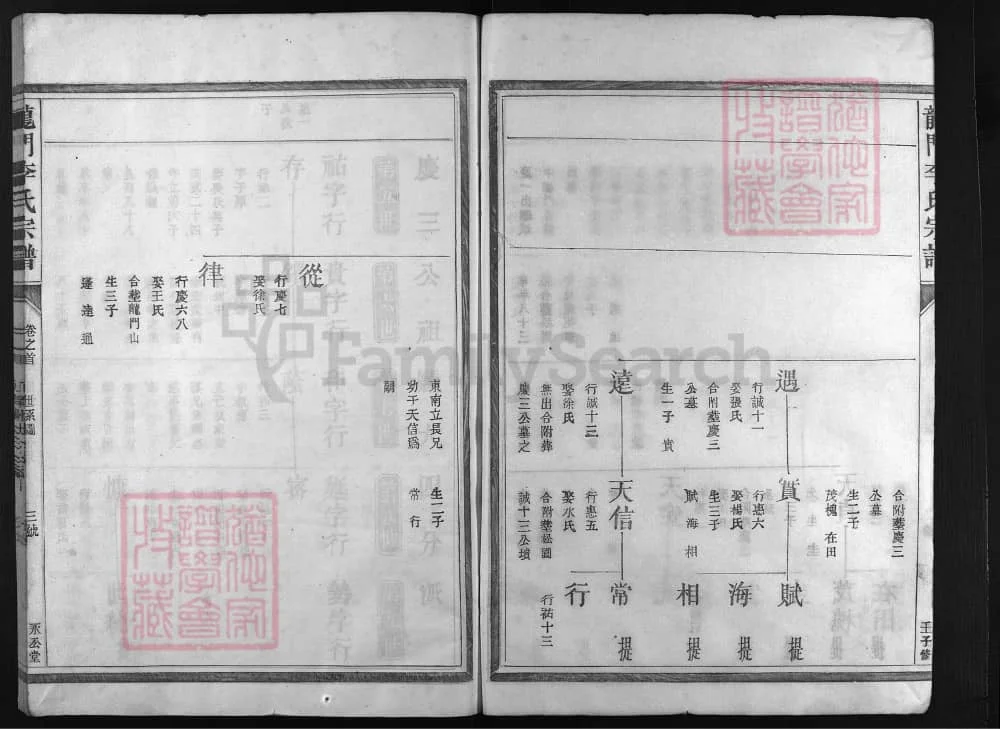 龍門李氏宗譜
壬子修
合附塟慶三
公墓
生二子
茂槐 在田
遇
行誠十一
娶張氏
合附塟慶三
公墓
生一子 貴
貴
行惠六
娶楊氏
生三子
賦 海 相
賦 提
海 提
相 提
遠
行誠十三
娶徐氏
無出合附塟
慶三公墓之
天信
行惠五
娶水氏
合附塟松園
誠十三公墳
常 提
行
行祜十三
東南立長兄
幼子天信為
嗣
生二子
常 行
從
行慶七
娶徐氏
律
行慶六八
娶王氏
合塟龍門山
生三子
達 通
龍門李氏宗譜
卷之首
世系圖
三號
永公堂
FamilySearch
譜學會
收藏
譜學會
收藏